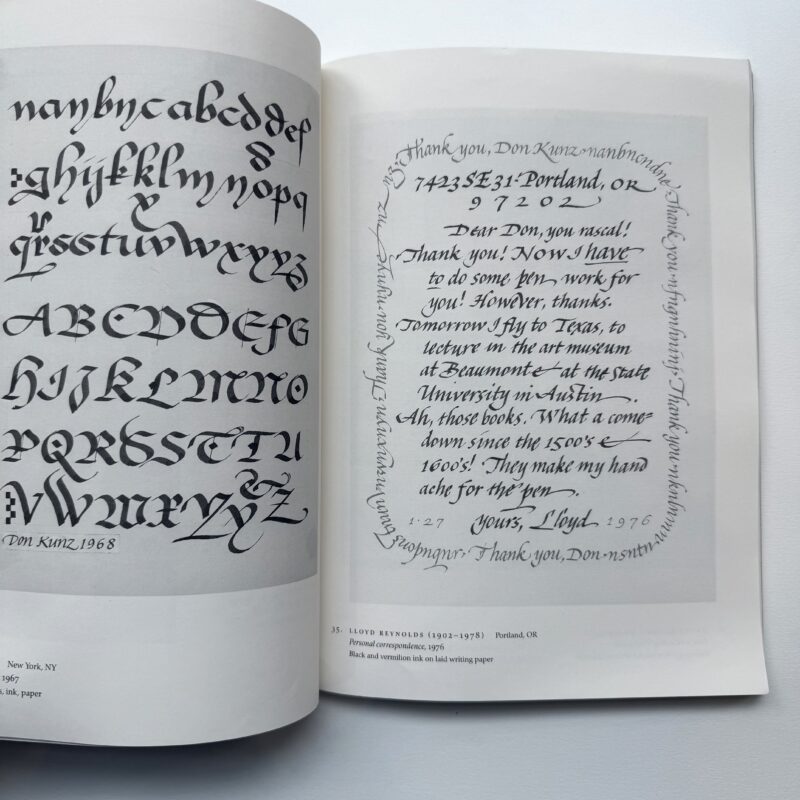 nanbnc abcddef
ghijkklmnopq
qrsstuvwxyyz
ABCDDEFG
HIJKLMNO
PQRSSTTU
VWMXYZ
Don Kunz 1968
New York, NY
1967
s, ink, paper
Thank you, Don Kunz
7423 SE 31 · Portland, OR
97202
Dear Don, you rascal!
Thank you! Now I have
to do some pen work for
you! However, thanks.
Tomorrow I fly to Texas, to
lecture in the art museum
at Beaumont & at the State
University in Austin.
Ah, those books. What a come=
down since the 1500's &
1600's! They make my hand
ache for the pen.
1·27 Yours, Lloyd 1976
Thank you, Don
Thank you
Thank you
Thank you
35. LLOYD REYNOLDS (1902–1978) Portland, OR
Personal correspondence, 1976
Black and vermilion ink on laid writing paper